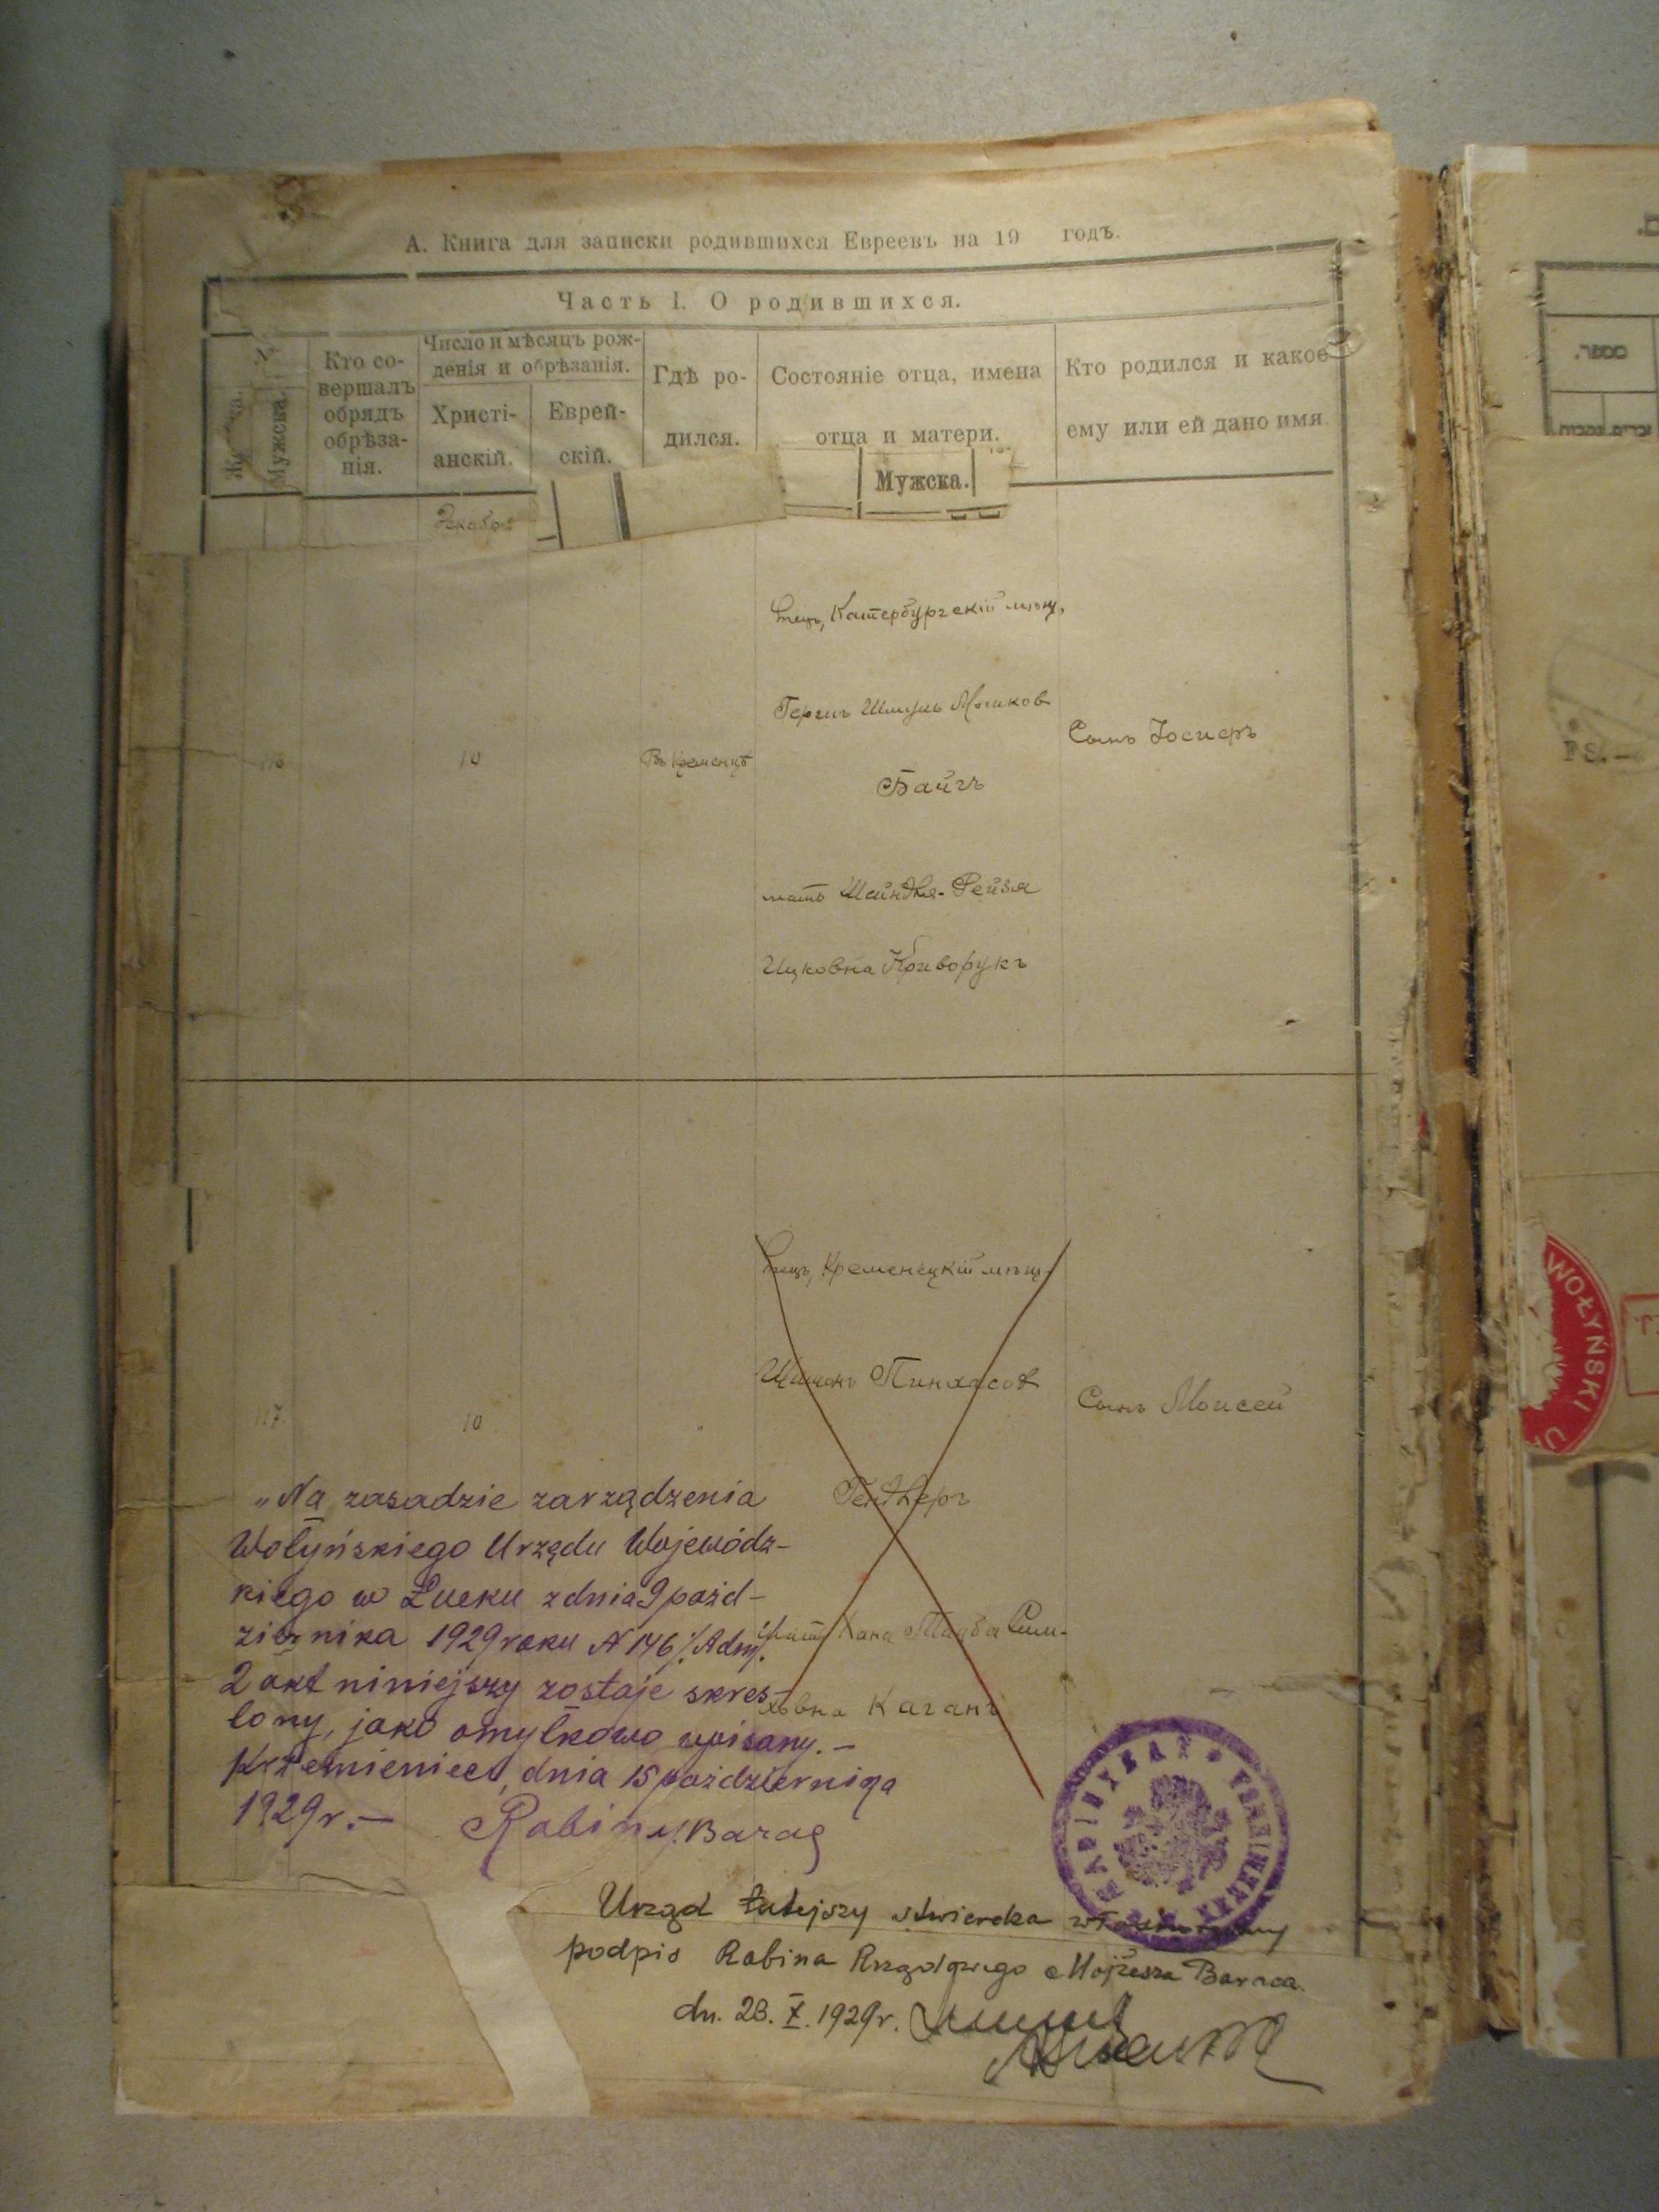 А. Книга для записки родившихся Евреевъ на 19 годъ.
Часть I. О родившихся.
№
Мужска.
Кто со-
вершалъ
обрядъ
обрѣза-
нія.
Число и мѣсяцъ рож-
денія и обрѣзанія.
Христі-
анскій.
Еврей-
скій.
Гдѣ ро-
дился.
Состояніе отца, имена
отца и матери.
Кто родился и какое
ему или ей дано имя.
Мужска.
Декабрь
116
10
Въ Кременцѣ
Отецъ, Катербургскій мѣщ.
Герш Шмуль
Байгъ
мать Шейндля-Рейзя
Ицковна Криворукъ
Сынъ Іосифъ
117
10
"
Отецъ, Кременецкій мѣщ.
Шимонъ Пинхасов
мать Хана Тауба Сим-
ховна Каганъ
Сынъ Моисей
„Na zasadzie zarządzenia
Wołyńskiego Urzędu Wojewódz-
kiego w Łucku z dnia 9 paźd-
ziernika 1929 roku N 146/Adm.
2 akt niniejszy zostaje skreś-
lony, jako omyłkowo wpisany.-
Krzemieniec, dnia 15 październiqa
1929r.- Rabin M. Barag
Urząd tutejszy stwierdza własnoręczny
podpis Rabina Rządowego Mojżesza Baraga.
dn. 23. X. 1929r.
WOŁYŃSKI